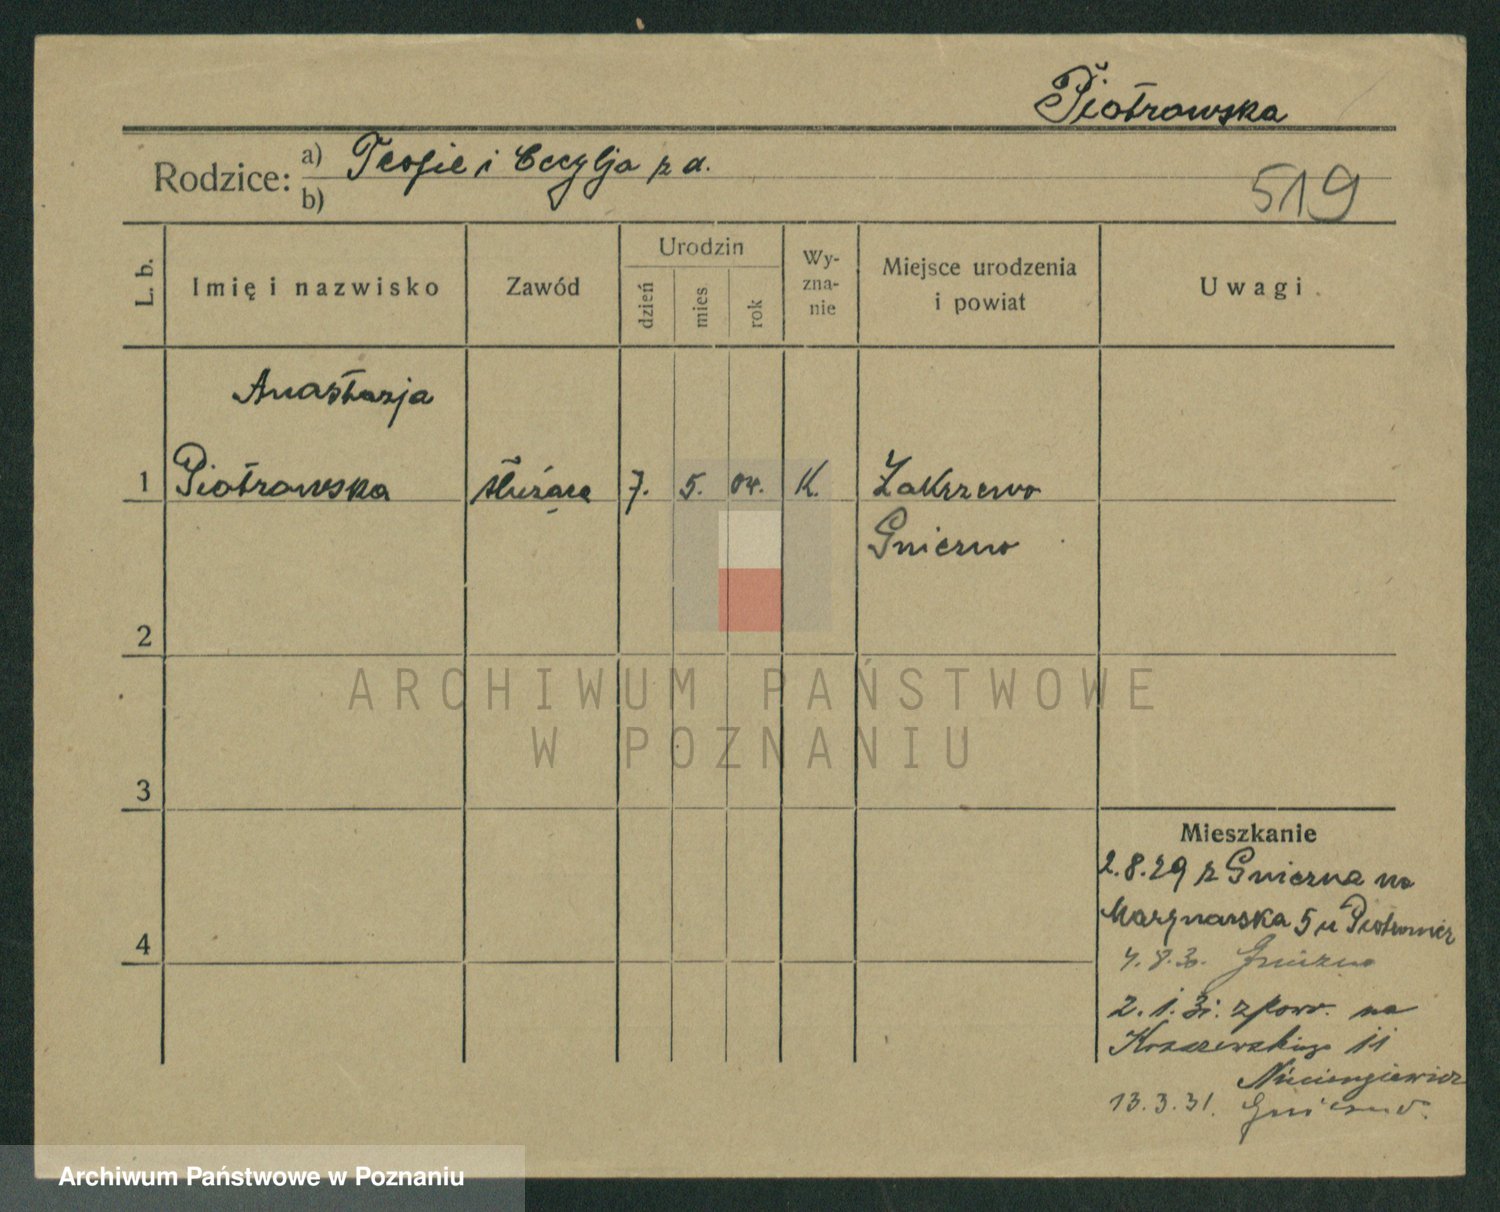 Piotrowska
Rodzice: a) Teofil i Cecylja z d.
b)
519
L. b.
Imię i nazwisko
Zawód
Urodzin
dzień
mies
rok
Wy-
zna-
nie
Miejsce urodzenia
i powiat
Uwagi
Anastazja
1 Piotrowska służąca 7. 5. 04. K. Zakrzewo
Gniezno
2
ARCHIWUM PAŃSTWOWE
W POZNANIU
3
Mieszkanie
2.8.29 z Gniezna na
Marynarska 5 u
4
4.8.30. Gniezno
2.1.31. z pow. na
Kraszewskiego 11
13.3.31. Gniezno.
Archiwum Państwowe w Poznaniu